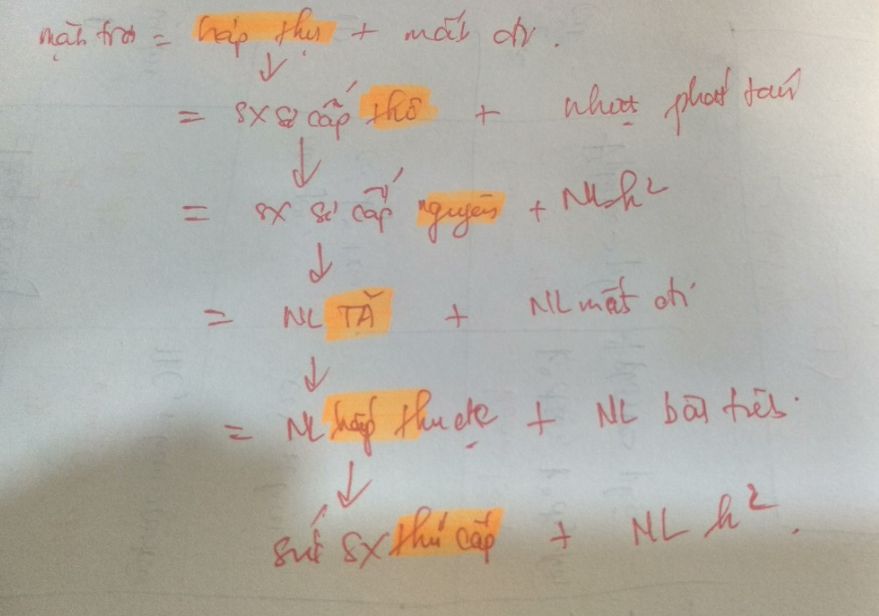 mặt trời = hấp thụ + mất đi.
↓
= SX sơ cấp thô + nhiệt phát tán
↓
= SX sơ cấp nguyên + NL h²
↓
= NL TĂ + NL mất đi
↓
= NL hấp thu đc + NL bài tiết.
↓
sức SX thứ cấp + NL h².